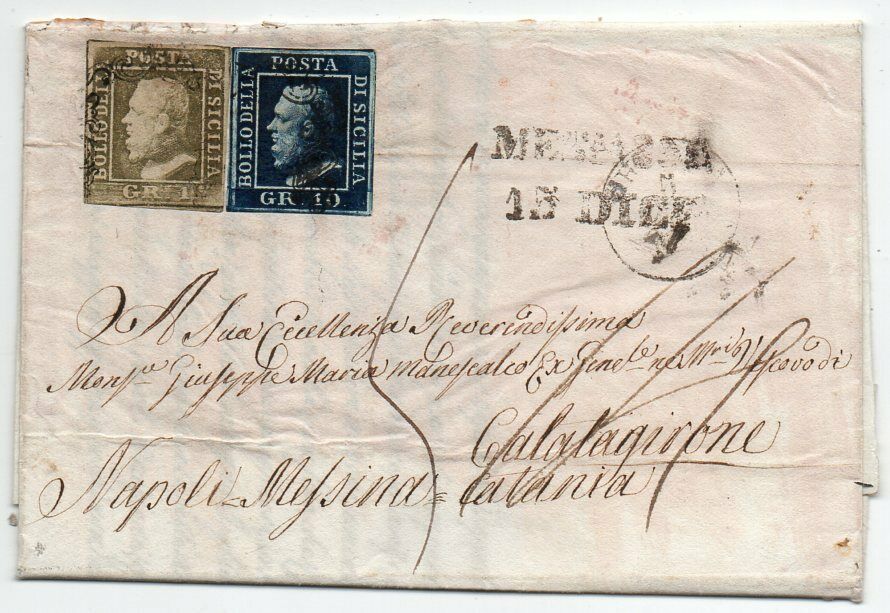 POSTA
BOLLO DELLA
DI SICILIA
GR. 1
POSTA
BOLLO DELLA
DI SICILIA
GR. 10
MESSINA
15 DICE
A Sua Eccellenza Reverendissima
Mons.re Giuseppe Maria Maniscalco Ex Vescovo di
Calatagirone
Napoli = Messina = Catania